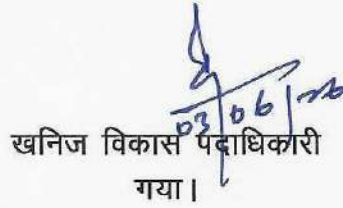 03/06/26
खनिज विकास पदाधिकारी
गया।